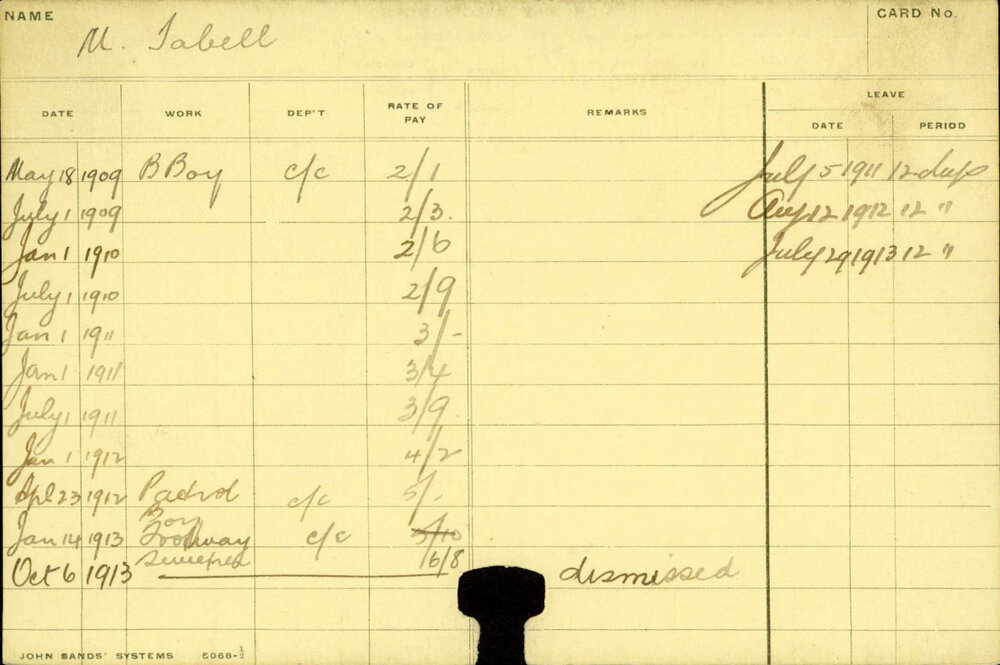 NAME M. Tabell CARD No.
LEAVE
DATE WORK DEP'T RATE OF PAY REMARKS DATE PERIOD
May 18 1909 B Boy c/c 2/1 July 5 1911 12 days
July 1 1909 2/3. Aug 12 1912 12 "
Jan 1 1910 2/6 July 29 1913 12 "
July 1 1910 2/9
Jan 1 1911 3/-
Jan 1 1911 3/4
July 1 1911 3/9
Jan 1 1912 4/2
Apl 23 1912 c/c 5/-
Boy
Jan 14 1913 Footway c/c 5/10
sweeper 6/8
Oct 6 1913 dismissed
JOHN SANDS' SYSTEMS 5068-½